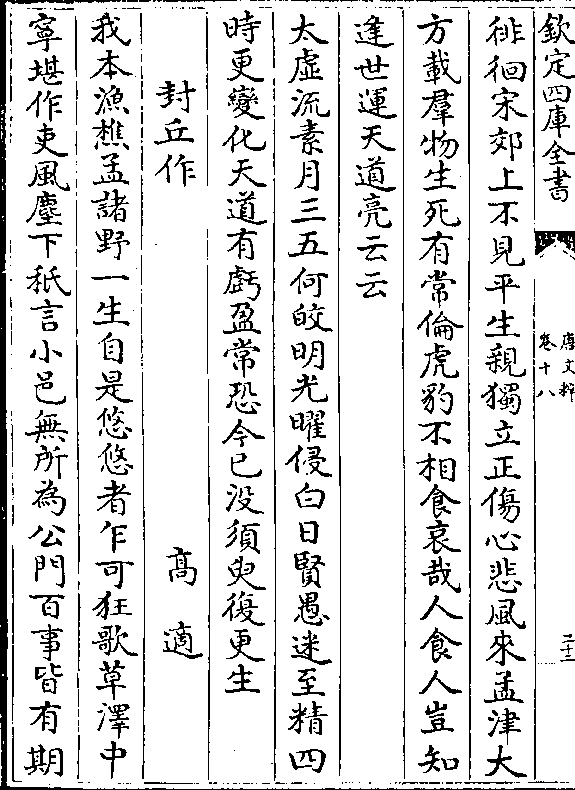 欽定四庫全書
唐文粹
卷十八
二十二
徘徊宋郊上不見平生親獨立正傷心悲風來孟津大
方載羣物生死有常倫虎豹不相食哀哉人食人豈知
逢世運天道亮云云
太虛流素月三五何皎明光曜侵白日賢愚迷至精四
時更變化天道有虧盈常恐今已没須臾復更生
封丘作　高適
我本漁樵孟諸野一生自是悠悠者乍可狂歌草澤中
寧堪作吏風塵下秖言小邑無所為公門百事皆有期